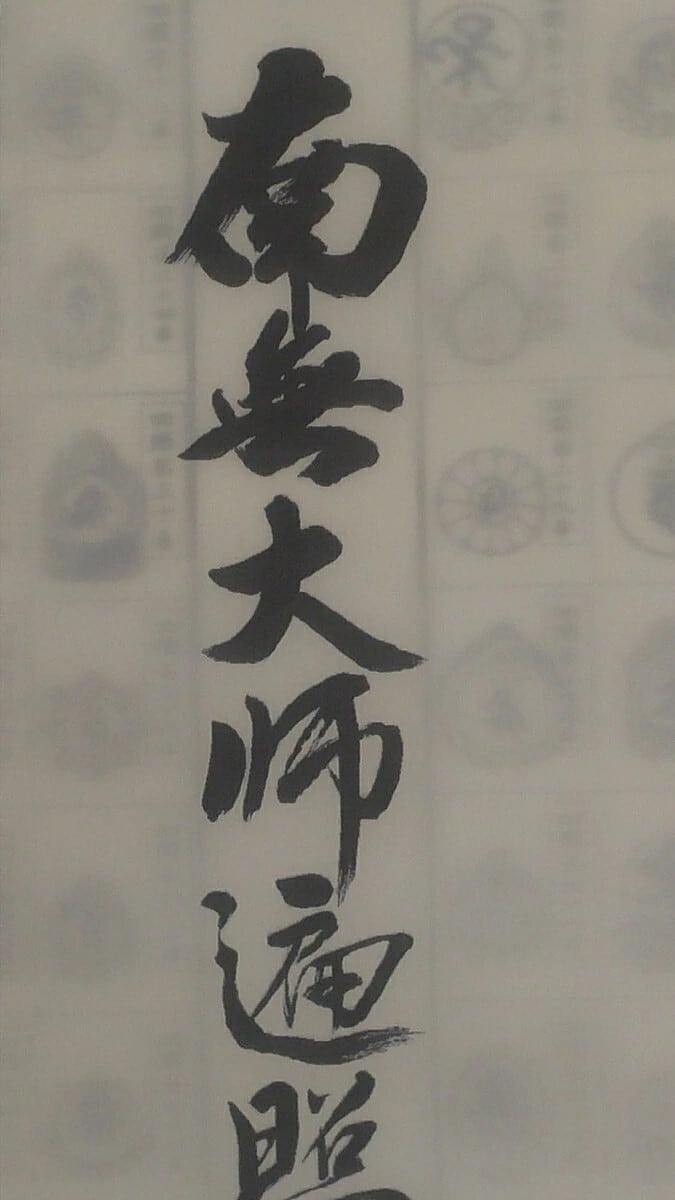 南無大師遍照